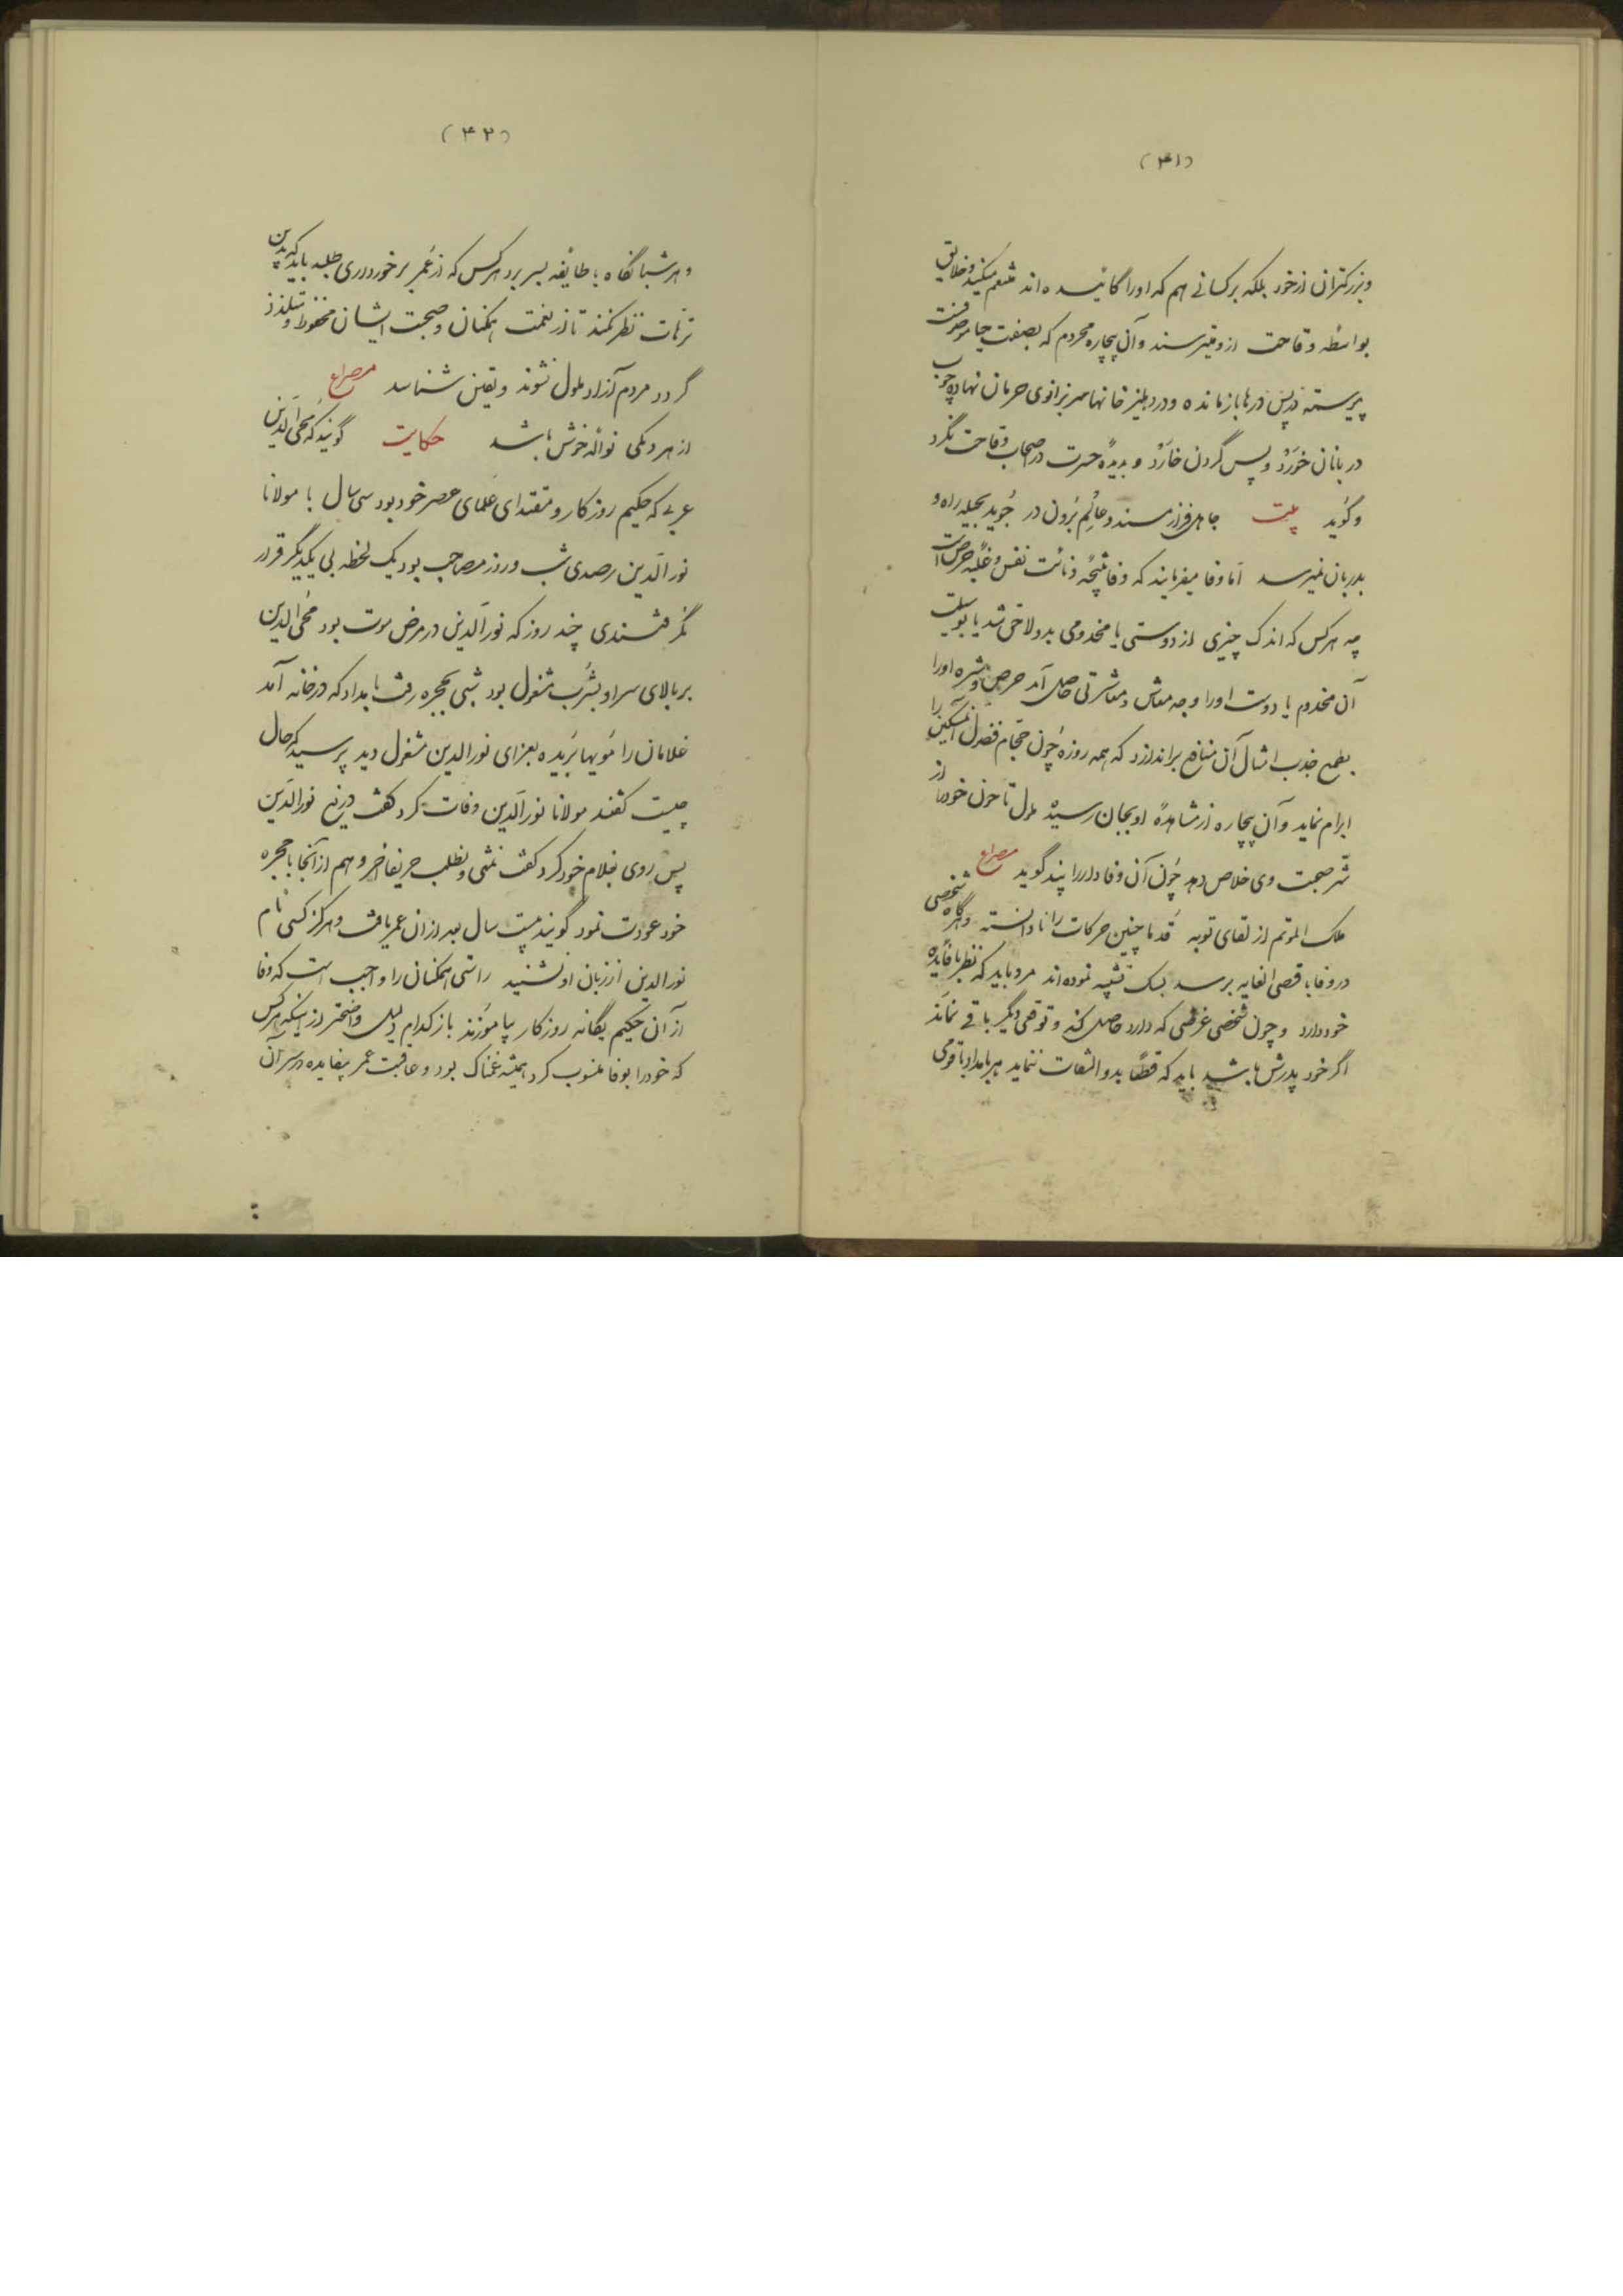 (۴۱)
و بزرکتران از خود بلکه بر کسانی هم که او را گائیده اند تنعم میکنند و خلایق
بواسطه وقاحت ازو میترسند و آن بیچاره محروم که بصفت حیا موصوفست
پیوسته در پس درها باز مانده و در دهلیز خانها سر بزانوی حرمان نهاده چوب
دربانان خورد و پس گردن خارد و بدیدهٔ حسرت در اصحاب وقاحت نگرد
و گوید بیت جاهل فراز مسند و عالم برون در جوید بحیله راه و
بدربان نمیرسد اما وفا میفرمایند که وفا نتیجهٔ دنائت نفس و غلبهٔ حرص است
چه هرکس که اندک چیزی از دوستی یا مخدومی بدو لاحق شد یا بوسیلت
آن مخدوم یا دوست او را وجه معاش و معاشرتی حاصل آمد حرص و شره او را
بطمع جذب امثال آن منافع براندازد که همه روزه چون حجام فضول آن مسکین را
ابرام نماید و آن بیچاره از مشاهدهٔ او بجان رسیده ملول تا خون خود را از
شر صحبت وی خلاص دهد چون آن وفادار را بیند گوید مصراع
ملک الموتم از لقای تو به قدما چنین حرکات را نادانسته و هرگاه شخصی
در وفا باقصی الغایه برسد بسگ تشبیه نموده اند مرد باید که نظر بافایده
خود دارد و چون شخصی غرضی که دارد حاصل کند و توقعی دیگر باقی نماند
اگر خود پدرش باشد باید که قطعاً بدو التفات ننماید هر بامداد با قومی
(۴۲)
و هر شبانگاه با طایفه بسر برد هرکس که از عمر برخورداری طلبد باید که بدین
ترهات نظر نکند تا از نعمت همکنان و صحبت ایشان محظوظ و متلذذ
گردد مردم آزاد ملول نشوند و یقین شناسد مصراع
از هر دیکی نوالهٔ خوش باشد حکایت گویند که محی الدین
عربی که حکیم روزکار و مقتدای علمای عصر خود بود سی سال با مولانا
نور الدین رصدی شب و روز مصاحب بود یک لحظه بی یکدیگر قرار
نگرفتندی چند روز که نور الدین در مرض موت بود محی الدین
بر بالای سر او بشرب مشغول بود شبی بحجره رفت بامداد که در خانه آمد
غلامان را مویها بریده بعزای نور الدین مشغول دید پرسید که حال
چیست کفتند مولانا نور الدین وفات کرد کفت دریغ نور الدین
پس روی بغلام خود کرد کفت نمشی و نطلب حریفا آخر و هم از آنجا با حجره
خود عودت نمود گویند بیست سال بعد از ان عمر یافت و هرکز کسی نام
نور الدین از زبان او نشنید راستی همکنان را واجب است که وفا
از آن حکیم یگانه روزکار بیاموزند باز کدام دلیل واضحتر از اینکه هرکس
که خود را بوفا منسوب کرد همیشه غمناک بود و عاقبت عمر بیفایده در سر آن